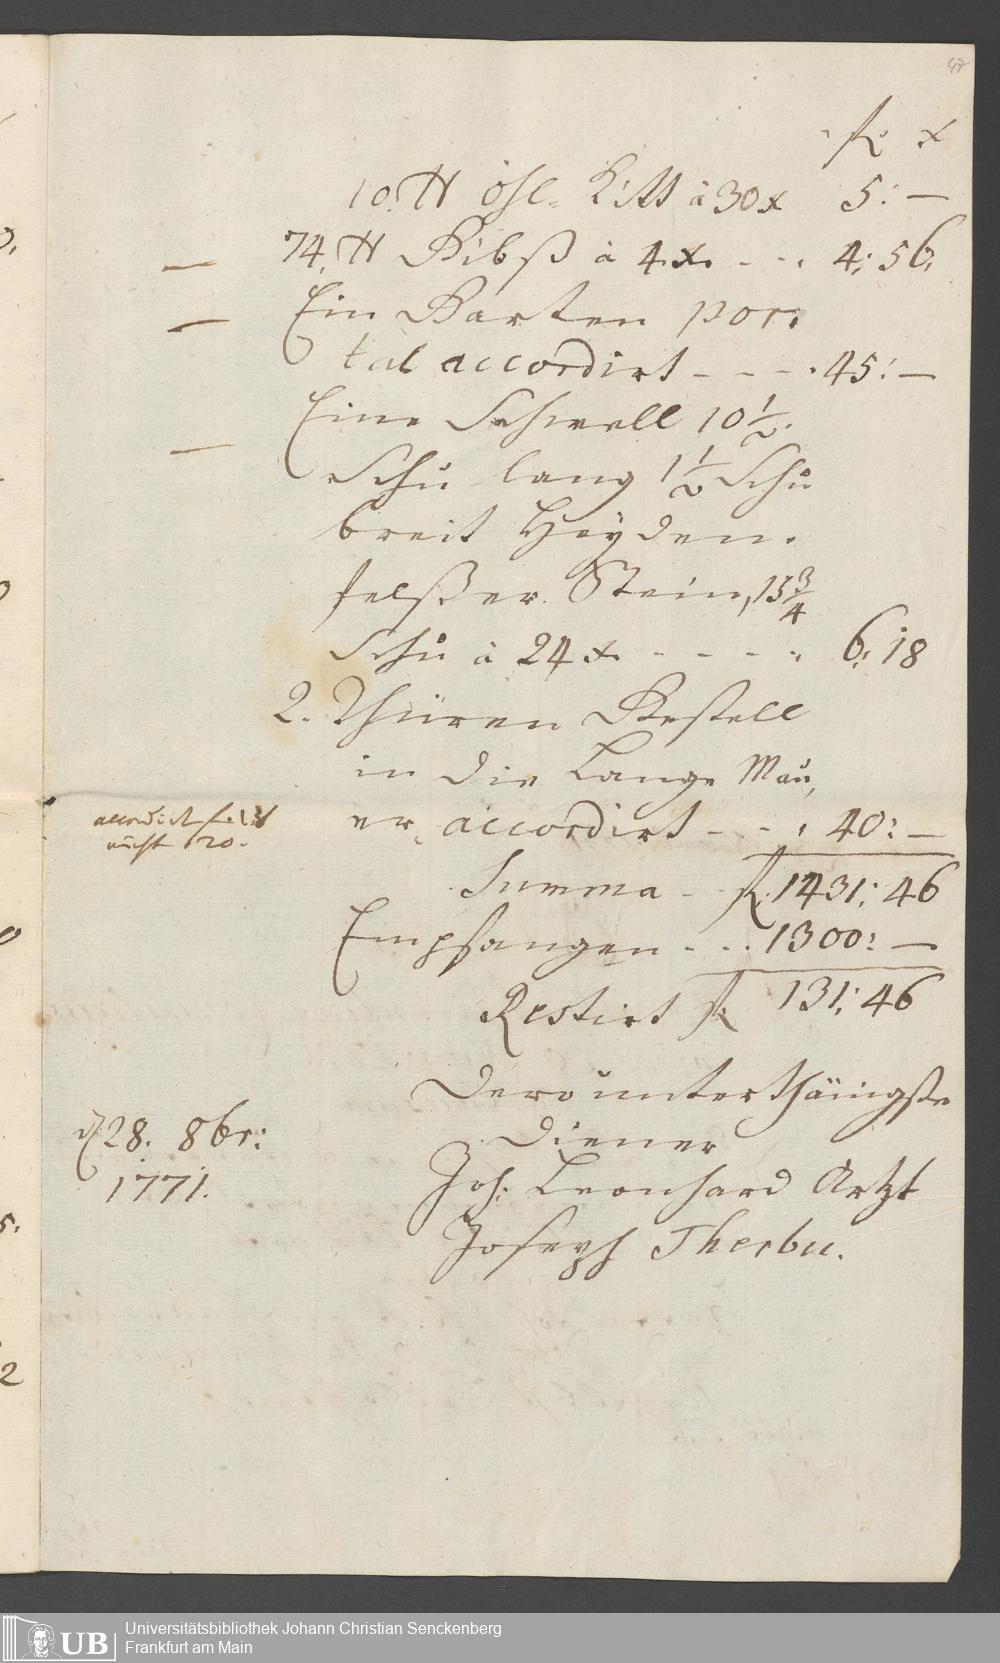 47
fl. x
10. ℔ öhl. Kitt à 30 x 5: —
— 74. ℔ Gibß à 4 x. - - . 4: 56.
— Ein Garten por-
tal accordirt - - - . 45: —
— Eine Schwell 10 1/2.
Schu lang 1 1/2 Schu
breit Heyden.
felßer Stein, 15 3/4
Schu à 24 x. - - - - . 6: 18
2. Thüren Gestell
in die Lange Mau,
er, accordirt - - . 40: —
nicht 20.
Summa - fl. 1431: 46
Empfangen - - . 1300: —
Restirt fl. 131: 46
Dero unterthänigste
Diener
d 28. 8br:
1771.
Joh: Leonhard Artzt
Joseph Therbu.
UB
Universitätsbibliothek Johann Christian Senckenberg
Frankfurt am Main